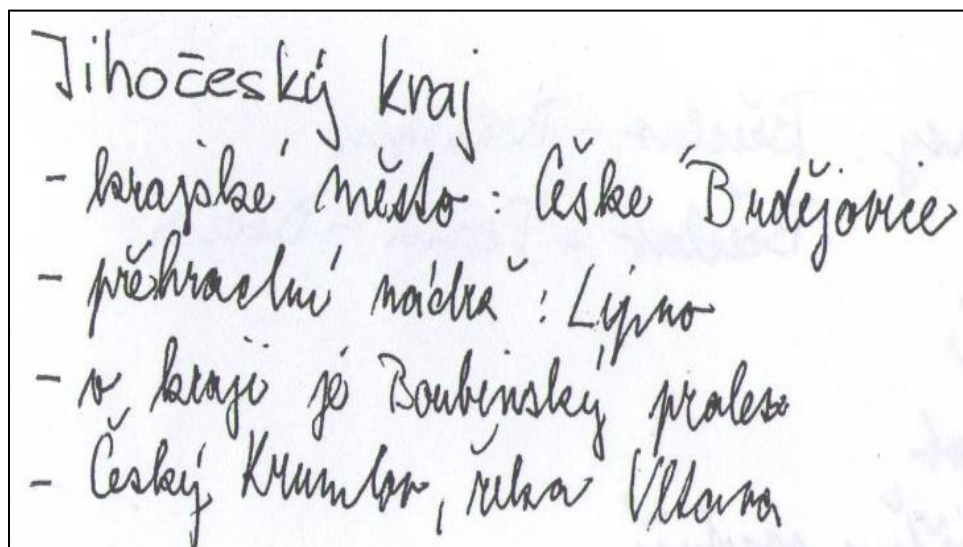 Jihočeský kraj
- krajské město: Čěške Brdějovice
- přěhradní nádrž: Lipno
- v kraji je Boubínský prales
- Český Krumlov, řeka Vltava